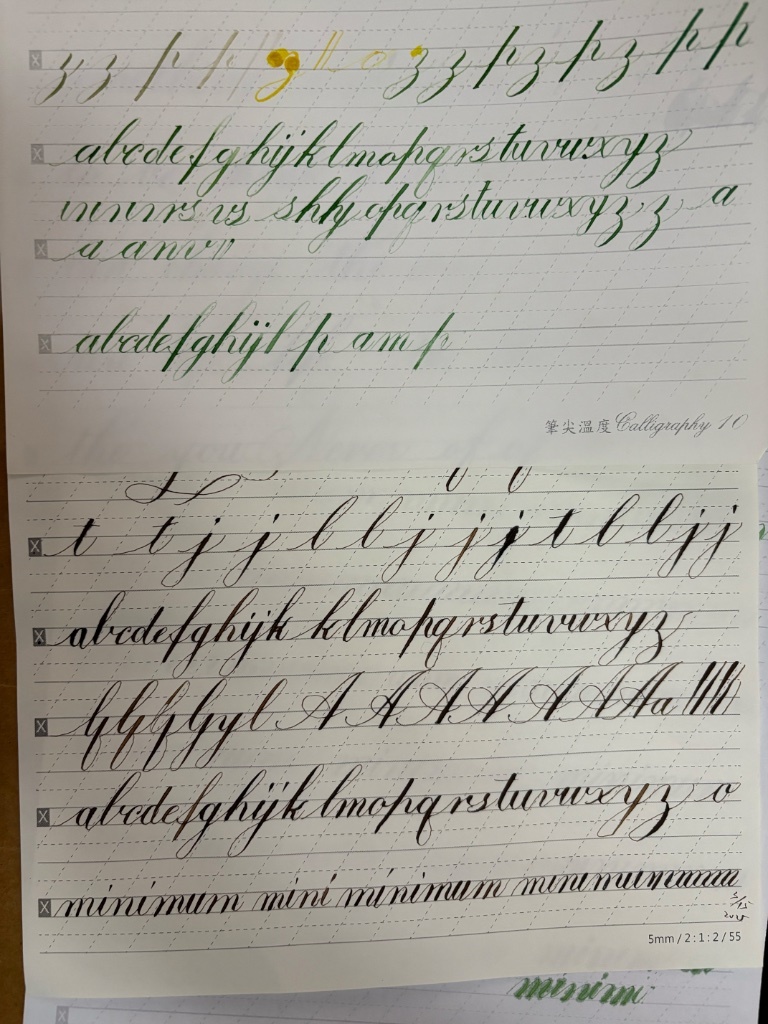 z z p p g ll o z z p z p z p p
abcdefghijklmopqrstuvwxyz
nnnrs rs shhj opqrstuvwxyz z a
a anv
abcdefghijl p am p
筆尖溫度 Calligraphy 10
t t j j l l j j j t l l j j
abcdefghijk klmopqrstuvwxyz
A A A A A A Aa
abcdefghijklmopqrstuvwxyz o
minimum mini minimum
3/15
2025
5mm / 2 : 1 : 2 / 55
minimi